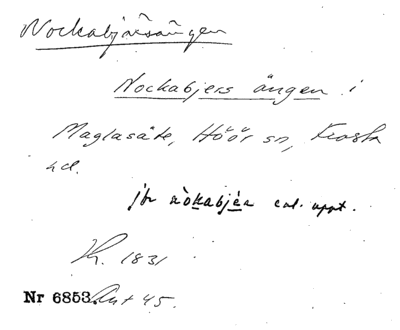 Nockabjärsängen
Nockabjers ängen i
Maglasäte, Höör sn, Frosta
hd.
jfr nòkabjéa enl. uppt.
Kr. 1831
Nr 6853. Ant 45.